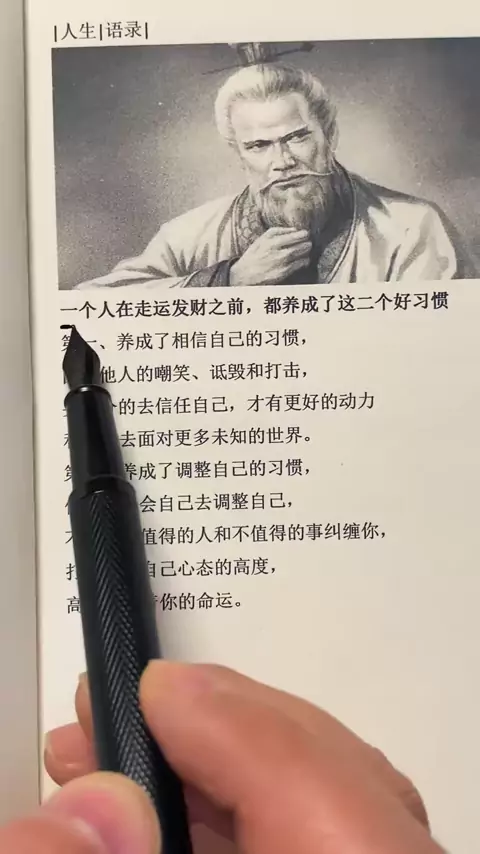 |人生|语录|
一个人在走运发财之前，都养成了这二个好习惯
第一、养成了相信自己的习惯，
他人的嘲笑、诋毁和打击，
的去信任自己，才有更好的动力
去面对更多未知的世界。
第 养成了调整自己的习惯，
会自己去调整自己，
值得的人和不值得的事纠缠你，
自己心态的高度，
你的命运。